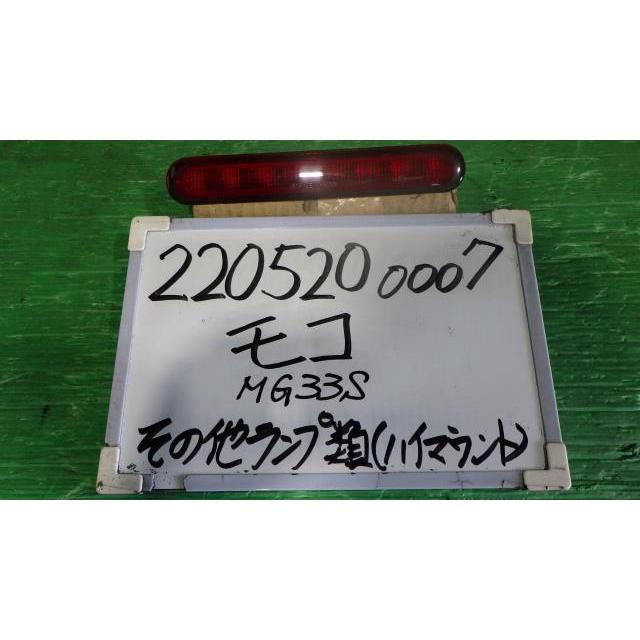 220520 0007
モコ
MG33S
その他ランプ類(ハイマウント)